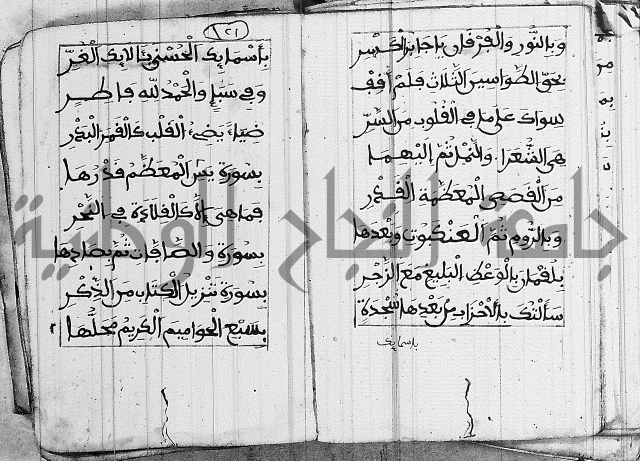 وبالنور والفرقان يا جابر الكسر
بحق الطواسين الثلاث فلم أقف
سواك على ما في القلوب من السر
هي الشعرا والنمل ثم إليهما
من القصص المعظمة القدر
وبالروم ثم العنكبوت وبعدها
بلقمان بالوعظ البليغ مع الزجر
سألتك بالأحزاب من بعدها سجدة
باسمايك
١٢١
باسمايك الحسنى بالايك الغر
وفي سبإ والحمد لله فاطر
ضياء يضيء القلب كالقمر البدر
بسورة يس المعظم قدرها
فما هي إلا كالقلادة في النحر
بسورة والصافات ثم بصادها
بسورة تنزيل الكتاب من الذكر
بسبع الحواميم الكريم محلها
جامعة النجاح الوطنية